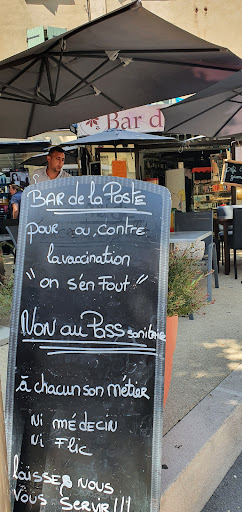 Bar d
BAR de la POSTE
pour ou, contre
la vaccination
"on s'en Fout"
NON au PASS sanitaire
à chacun son métier
Ni médecin
Ni Flic
Laissez Nous
Vous Servir !!!